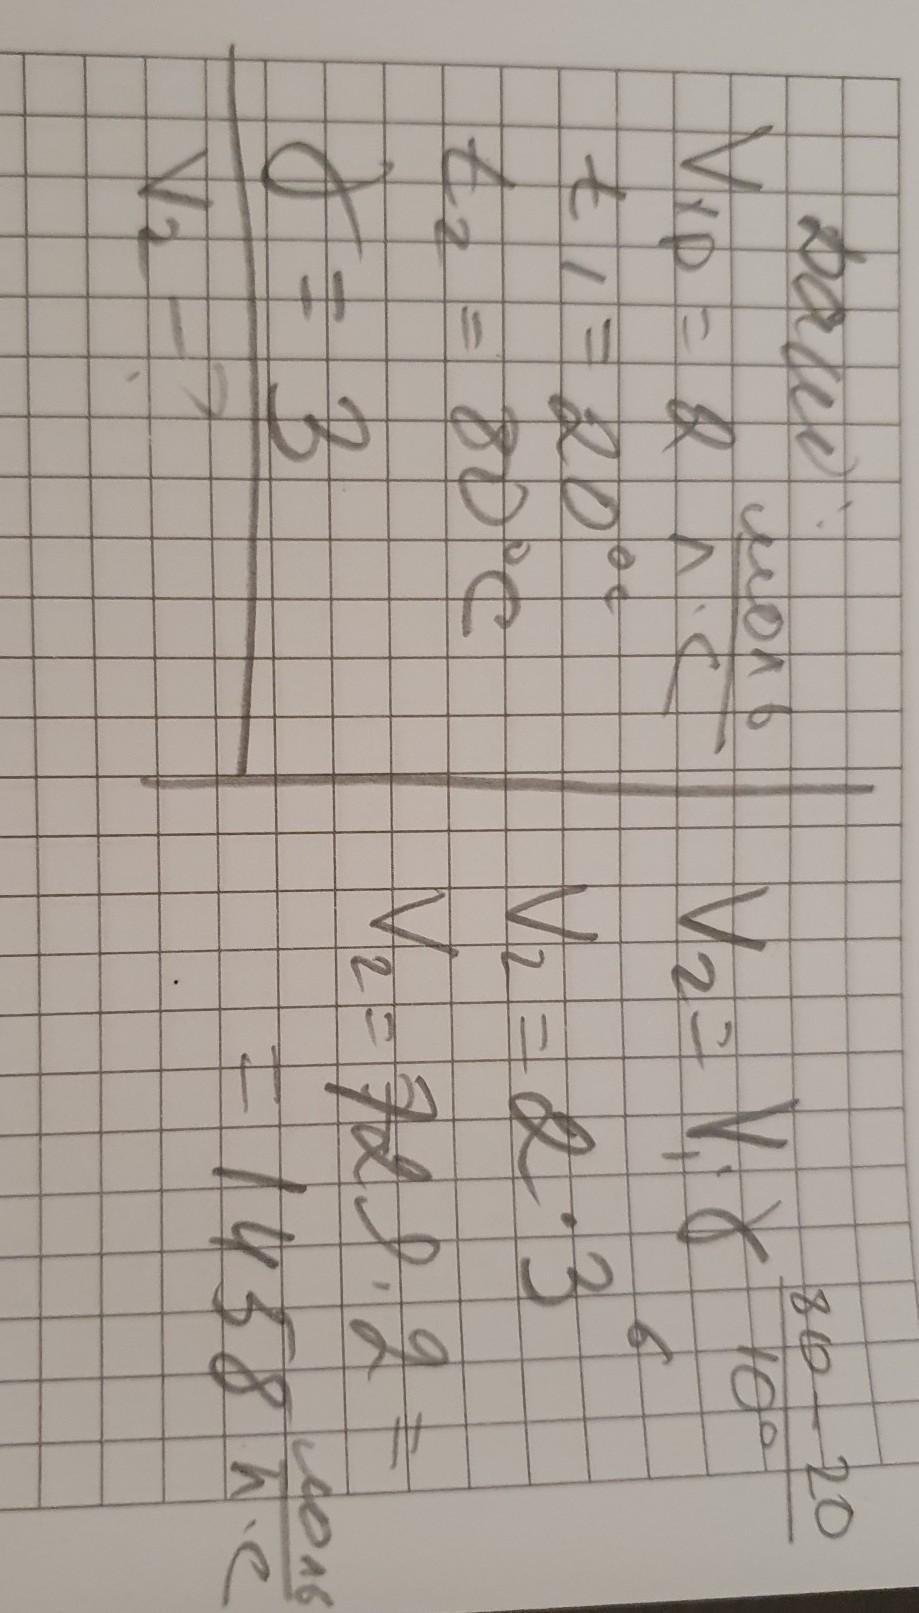 Дано:
V₁р = 2 моль/л·с
t₁ = 20°C
t₂ = 80°C
γ = 3
V₂ - ?
V₂ = V₁·γ^(80-20)/10°
V₂ = 2·3⁶
V₂ = 729·2 =
= 1458 моль/л·с